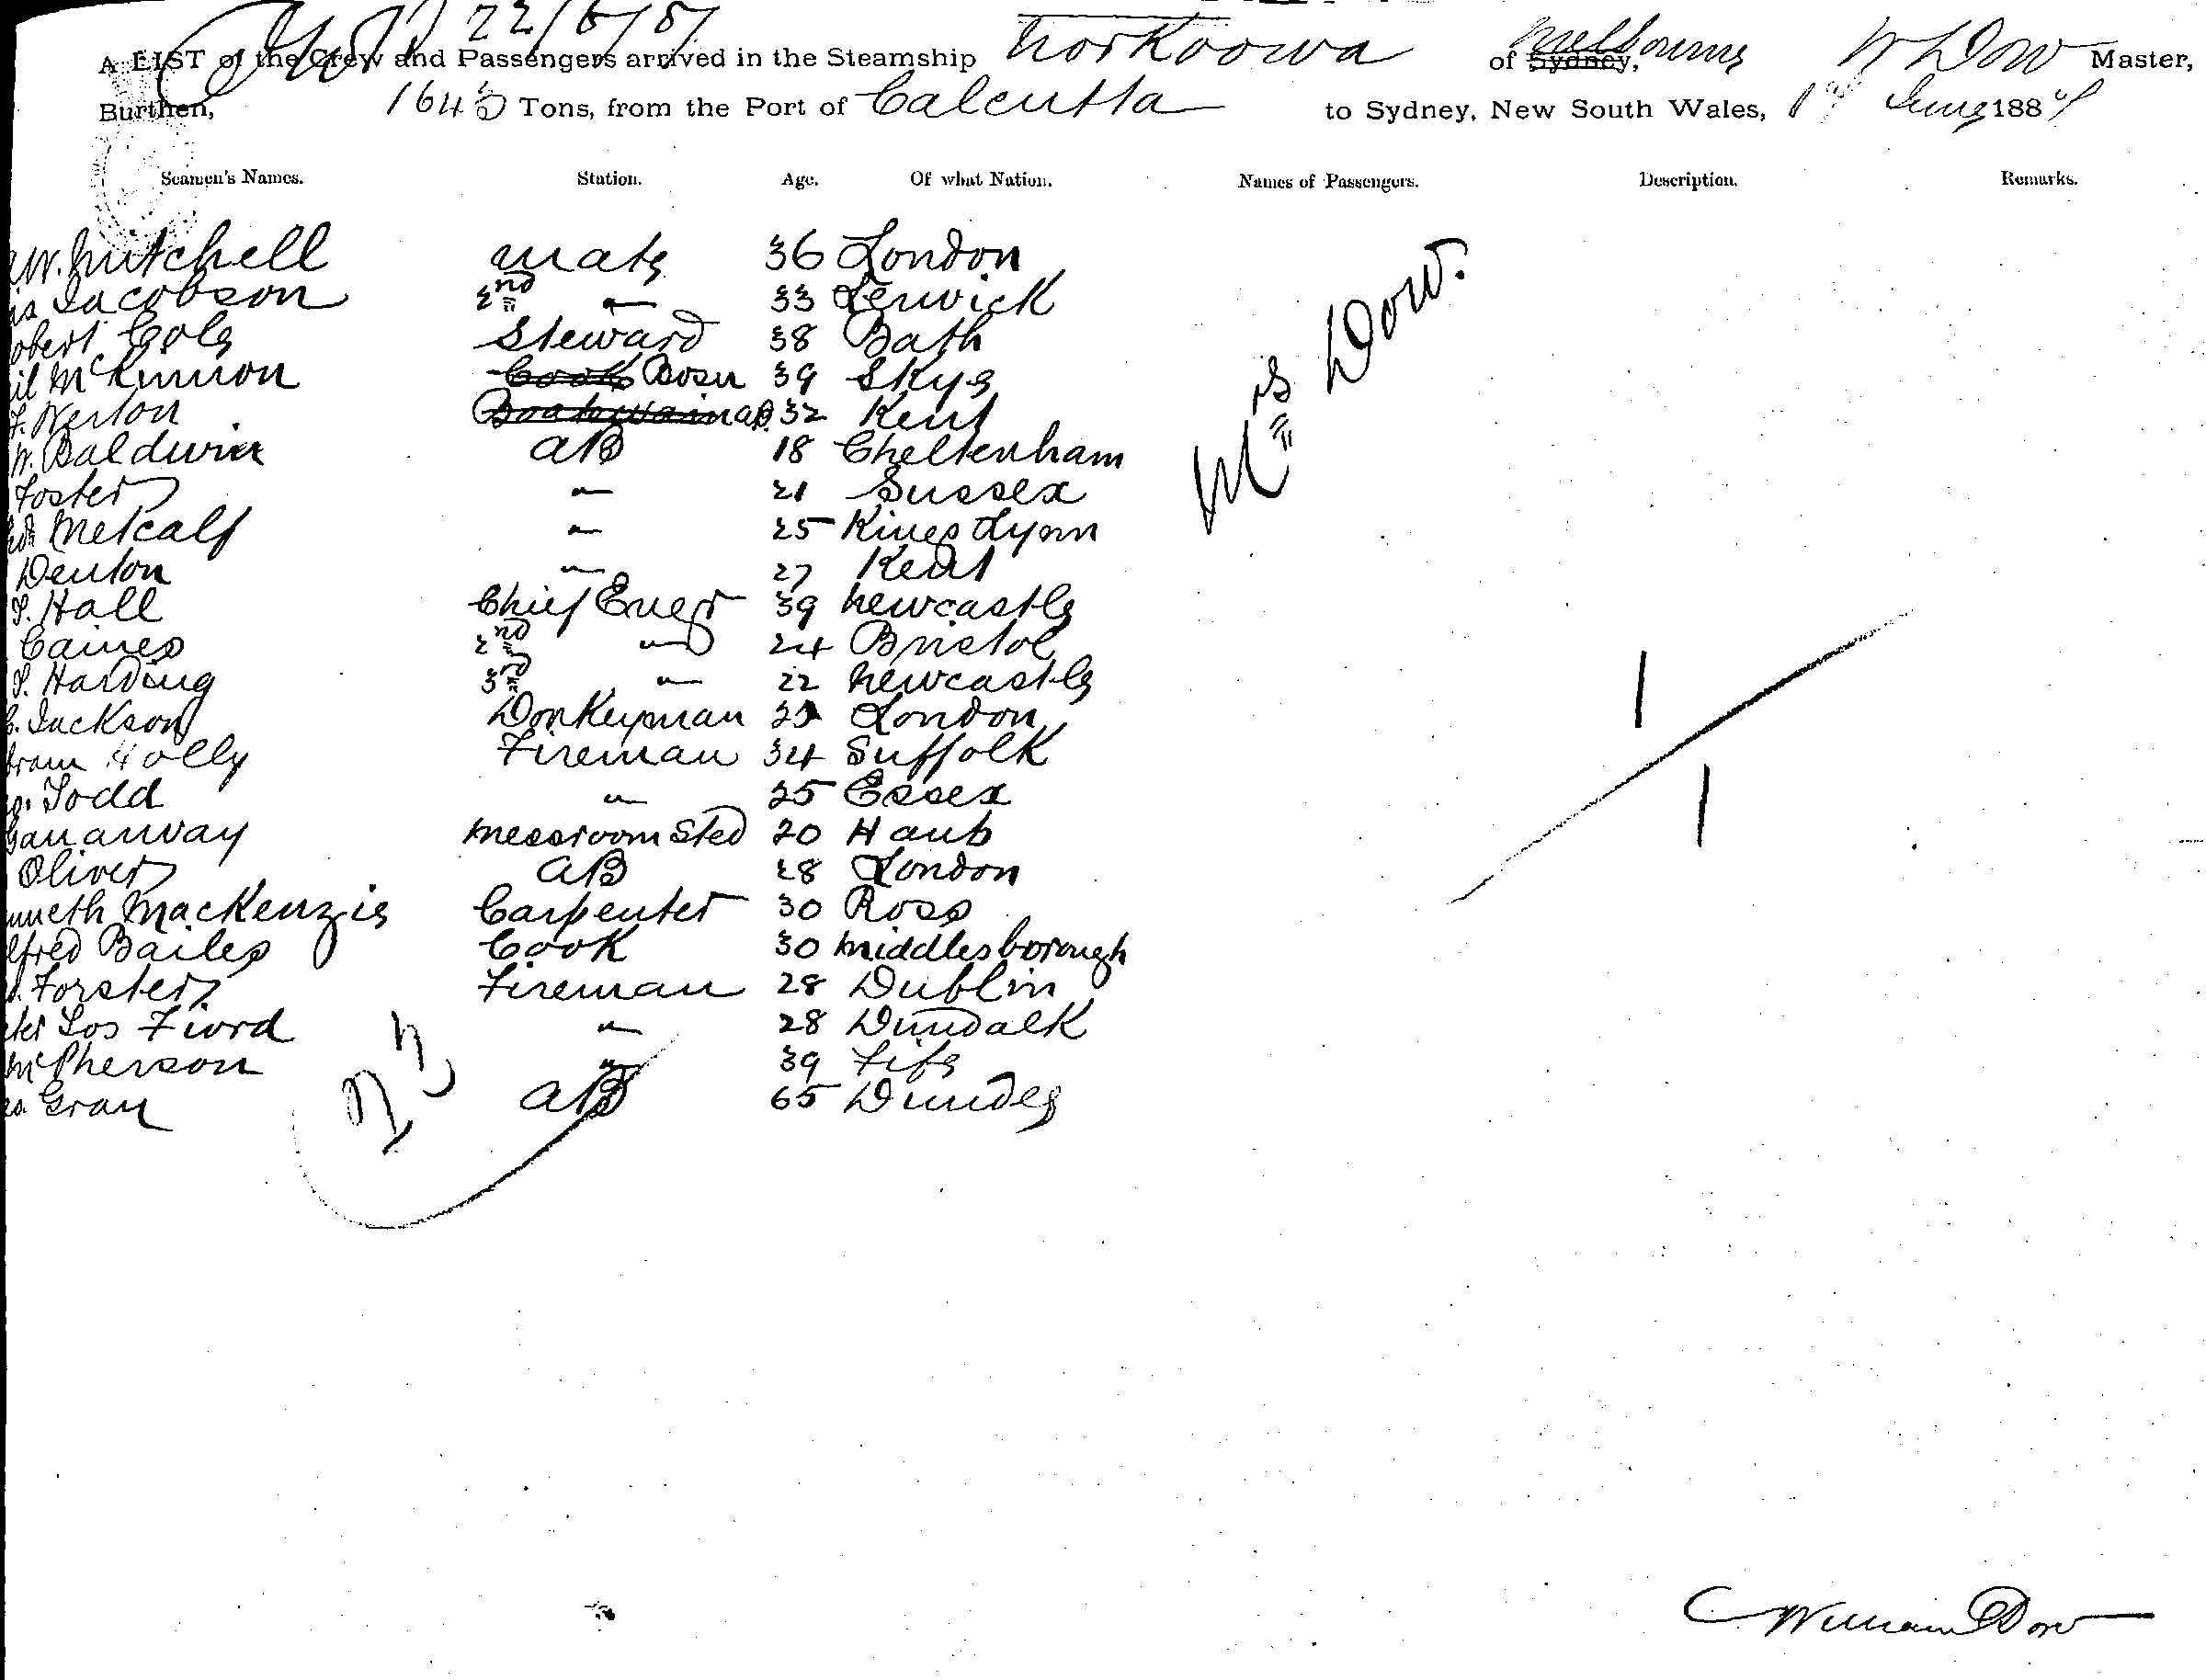 22/6/8
A LIST of the Crew and Passengers arrived in the Steamship Norkoowa of Sydney, Melbourne W Dow Master,
Burthen, 1643 Tons, from the Port of Calcutta to Sydney, New South Wales, June 188
Seamen's Names. Station. Age. Of what Nation. Names of Passengers. Description. Remarks.
W. Mitchell mate 36 London
Jacobson 2nd " 33 Lerwick
obert Cole Steward 38 Bath
il McKinnon Cook Bosn 39 Skye
F. Nerton Boatswain AB 32 Kent
W. Baldwin AB 18 Cheltenham
Foster " 21 Sussex
Metcalf " 25 Kings Lynn
Denton " 27 Kent
S. Hall Chief Engr 39 Newcastle
Caines 2nd " 24 Bristol
S. Harding 3rd " 22 Newcastle
C. Jackson Donkeyman London
bram Holly Fireman 34 Suffolk
Todd " 25 Essex
Ganaway Messroom Sted 20 Hants
Oliver AB 28 London
nneth MacKenzie Carpenter 30 Ross
lfred Bailes Cook 30 Middlesborough
Forster Fireman 28 Dublin
ter Los Fiord " 28 Dundalk
McPherson " 39 Fife
Gray AB 65 Dundee
Mrs Dow.
1
1
23
William Dow